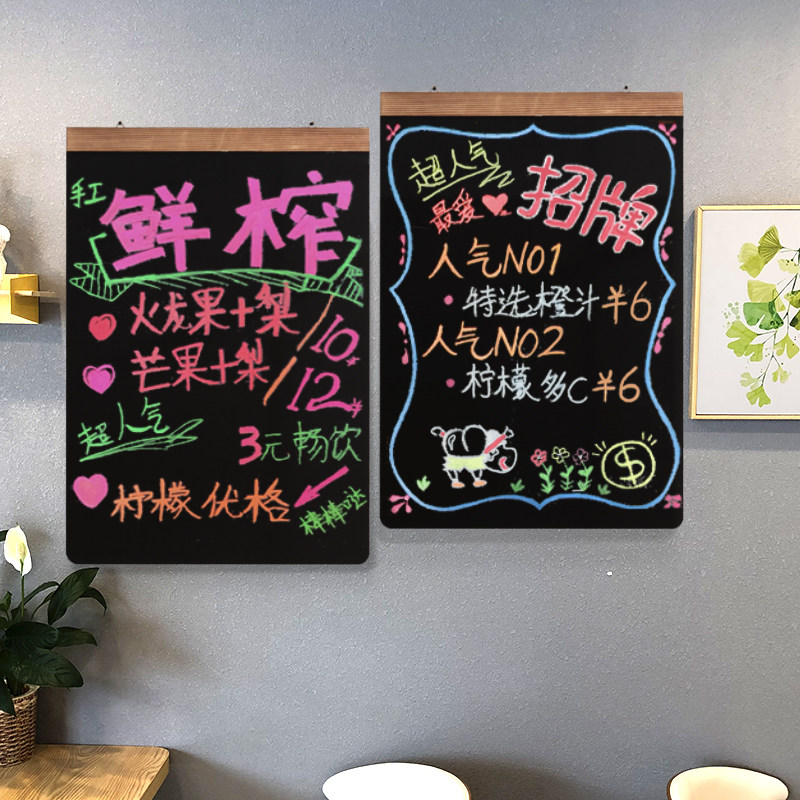 手工
鲜榨
火龙果+梨
10元
芒果+梨
12元
超人气
3元畅饮
柠檬优格
棒棒哒
超人气
最爱
招牌
人气NO1
·特选橙汁¥6
人气NO2
·柠檬多C¥6
$